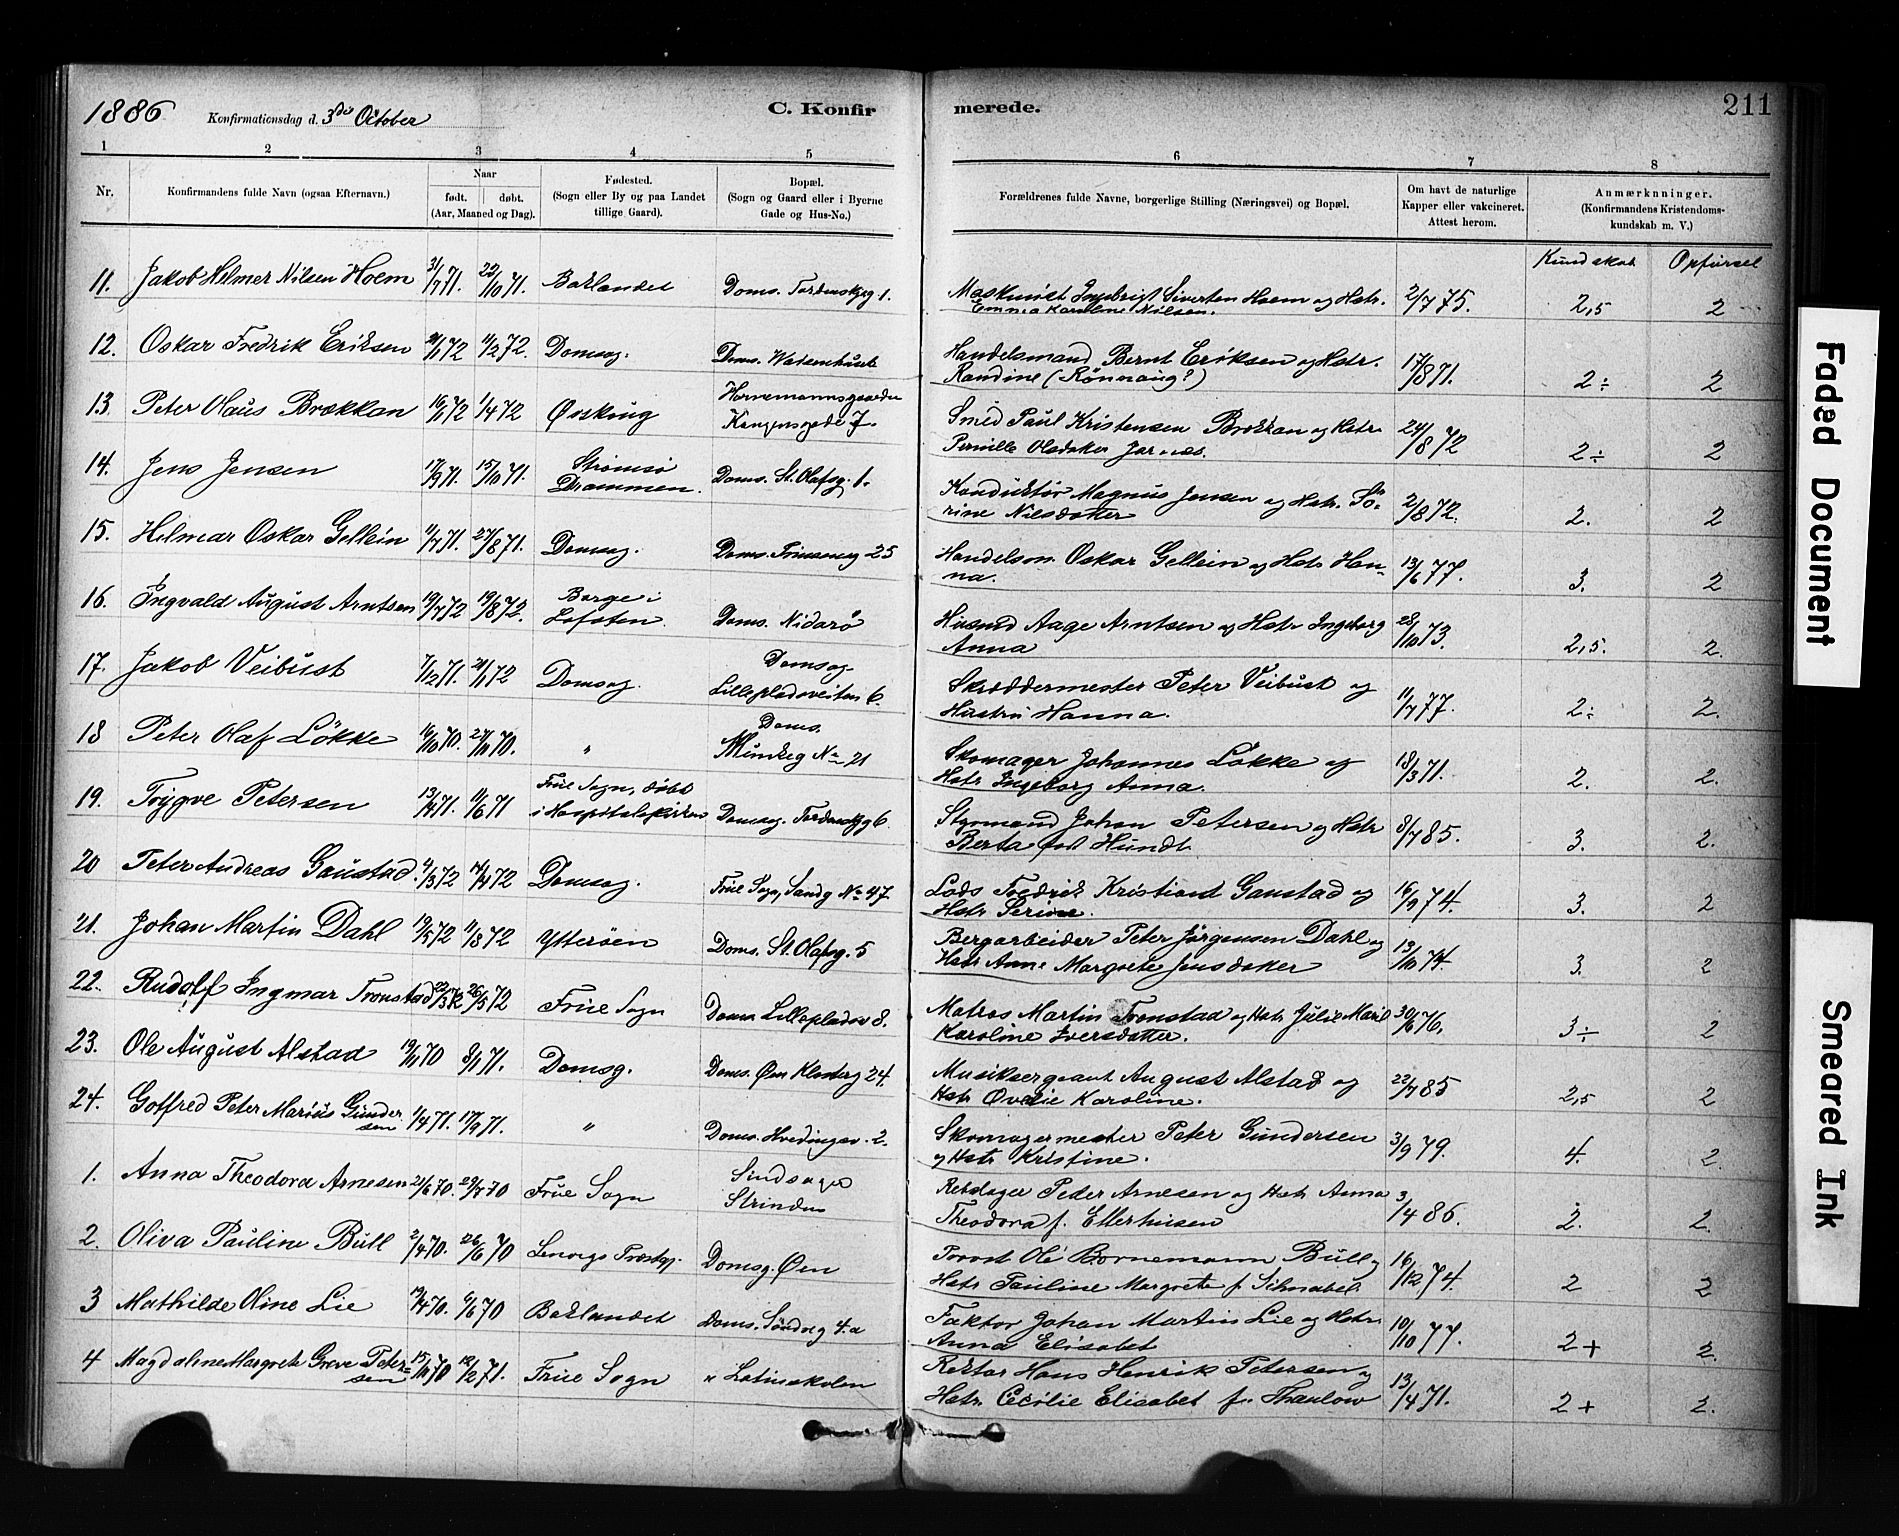 1886 Konfirmationsdag d. 3die October
C. Konfirmerede.
211
1 2 3 4 5 6 7 8
Nr.
Konfirmandens fulde Navn (ogsaa Efternavn.)
Naar
født. døbt.
(Aar, Maaned og Dag).
Fødested.
(Sogn eller By og paa Landet
tillige Gaard).
Bopæl.
(Sogn og Gaard eller i Byerne
Gade og Hus-No.)
Forældrenes fulde Navne, borgerlige Stilling (Næringsvei) og Bopæl.
Om havt de naturlige
Kapper eller vakcineret.
Attest herom.
Anmærknninger.
(Konfirmandens Kristendoms-
kundskab m. V.)
Kundskab Opførsel
11. Jakob Helmer Nilsen Hoem 31/7 71. 22/10 71. Baklandet Doms. Tordenskjg 1. Maskinist Ingebrigt Sivertsen Hoem og Hstr. 2/7 75. 2,5 2
Emma Karoline Nilsen.
12. Oskar Fredrik Eriksen 11/2 72. Domsog. Doms. Waisenhuset Handelsmand Bernt Eriksen og Hstr. 17/8 71. 2÷ 2
Randine (Rönnaug?)
13. Peter Olaus Brækkan 16/1 72 1/4 72 Hornemannsgaarden
Kongensgade 7. Smed Paul Kristensen Brækkan og Hstr. 24/8 72 2÷ 2
Pernille Olsdatter
14. Jens Jensen 17/9 71. 15/10 71. Strømsø
Drammen. Doms. St. Olafsg. 1. Konduktør Magnus Jensen og Hstr. Sö- 2/8 72. 2. 2
rine Nilsdatter
15. Helmar Oskar Gellein 11/7 71. 27/8 71. Domsog. Doms. 25 Handelsm. Oskar Gellein og Hstr Han- 13/6 77. 3. 2
na.
16. Ingvald August Arntsen 19/7 72 19/8 72. Borge i
Lofoten Doms. Nidarö Husmd Aage Arntsen og Hstr Ingeborg 28/10 73. 2,5. 2.
Anna
17. Jakob Veibust 7/12 71. 21/1 72 Domsog. Domsog.
Lillepladsveiten 6. Skræddermester Peter Veibust og 11/7 77. 2÷ 2.
Hustru Hanna.
18 Peter Olaf Løkke 16/10 70. 27/11 70. " Doms.
Munkeg No 21 Skomager Johannes Løkke og 18/3 71. 2. 2.
Hstr Ingeborg Anna.
19. Trygve Petersen 13/4 71. 11/6 71 Frue Sogn, døbt
i Hospitalskirken Domsog. Tordenskjg 6 Styrmand Johan Petersen og Hstr 8/7 85. 3. 2.
Berta född Hundt
20 Peter Andreas Gaustad. 4/3 72 14/4 72 Domsog. Frue Sogn, Sandg No 47 Lods Fredrik Kristiant Gaustad og 16/9 74. 3. 2
Hstr Serine.
21. Johan Martin Dahl 19/5 72 11/8 72 Ytterøen Doms. St. Olafsg. 5 Bergarbeider Peter Jørgensen Dahl og 13/10 74. 3. 2
Hstr Anne Margrete Jensdatter
22. Rudolf Ingmar Tronstad 22/3 72 26/5 72 Frue Sogn Doms Lillepladsv 8. Matros Martin Tronstad og Hstr Julie Marie 30/6 76, 3÷ 2
Karoline Iversdatter.
23. Ole August Alstad 19/11 70 8/1 71. Domsg. Doms. Øvre Klosterg 24. Musiksergeant August Alstad og 22/7 85 2,5 2
Hstr Ovedie Karoline.
24. Gotfred Peter Marius Gunder 1/4 71. 17/9 71. " Doms. Hvedingsv. 2. Skomagermester Peter Gundersen 3/9 79. 4. 2.
sen og Hstr Kristine.
1. Anna Theodora Arnesen 21/6 70. 29/7 70 Frue Sogn
Strinden Rebslager Peder Arnesen og Hstr Anna 3/4 86. 2. 2.
Theodora f. Ellerhusen
2. Oliva Pauline Bull 2/4 70. 26/6 70 Lenvigs Præstgj. Domsg. Øen Provst Ole Bornemann Bull og 16/12 74. 2 2
Hstr Pauline Margrete f. Schnabel.
3 Mathilde Oline Lie 19/4 70. 6/6 70 Baklandet Doms. Söndreg 4.a Faktor Johan Martin Lie og Hstr 10/10 77. 2+ 2.
Anna Elisabet
4 Magdalene Margrete Greve Peter- 15/11 70 12/2 71. Frue Sogn " Latinskolen Rektor Hans Henrik Petersen og 13/4 71. 2+ 2.
sen Hstr Cecilie Elisabet f. Thaulow
Faded Document
Smeared Ink